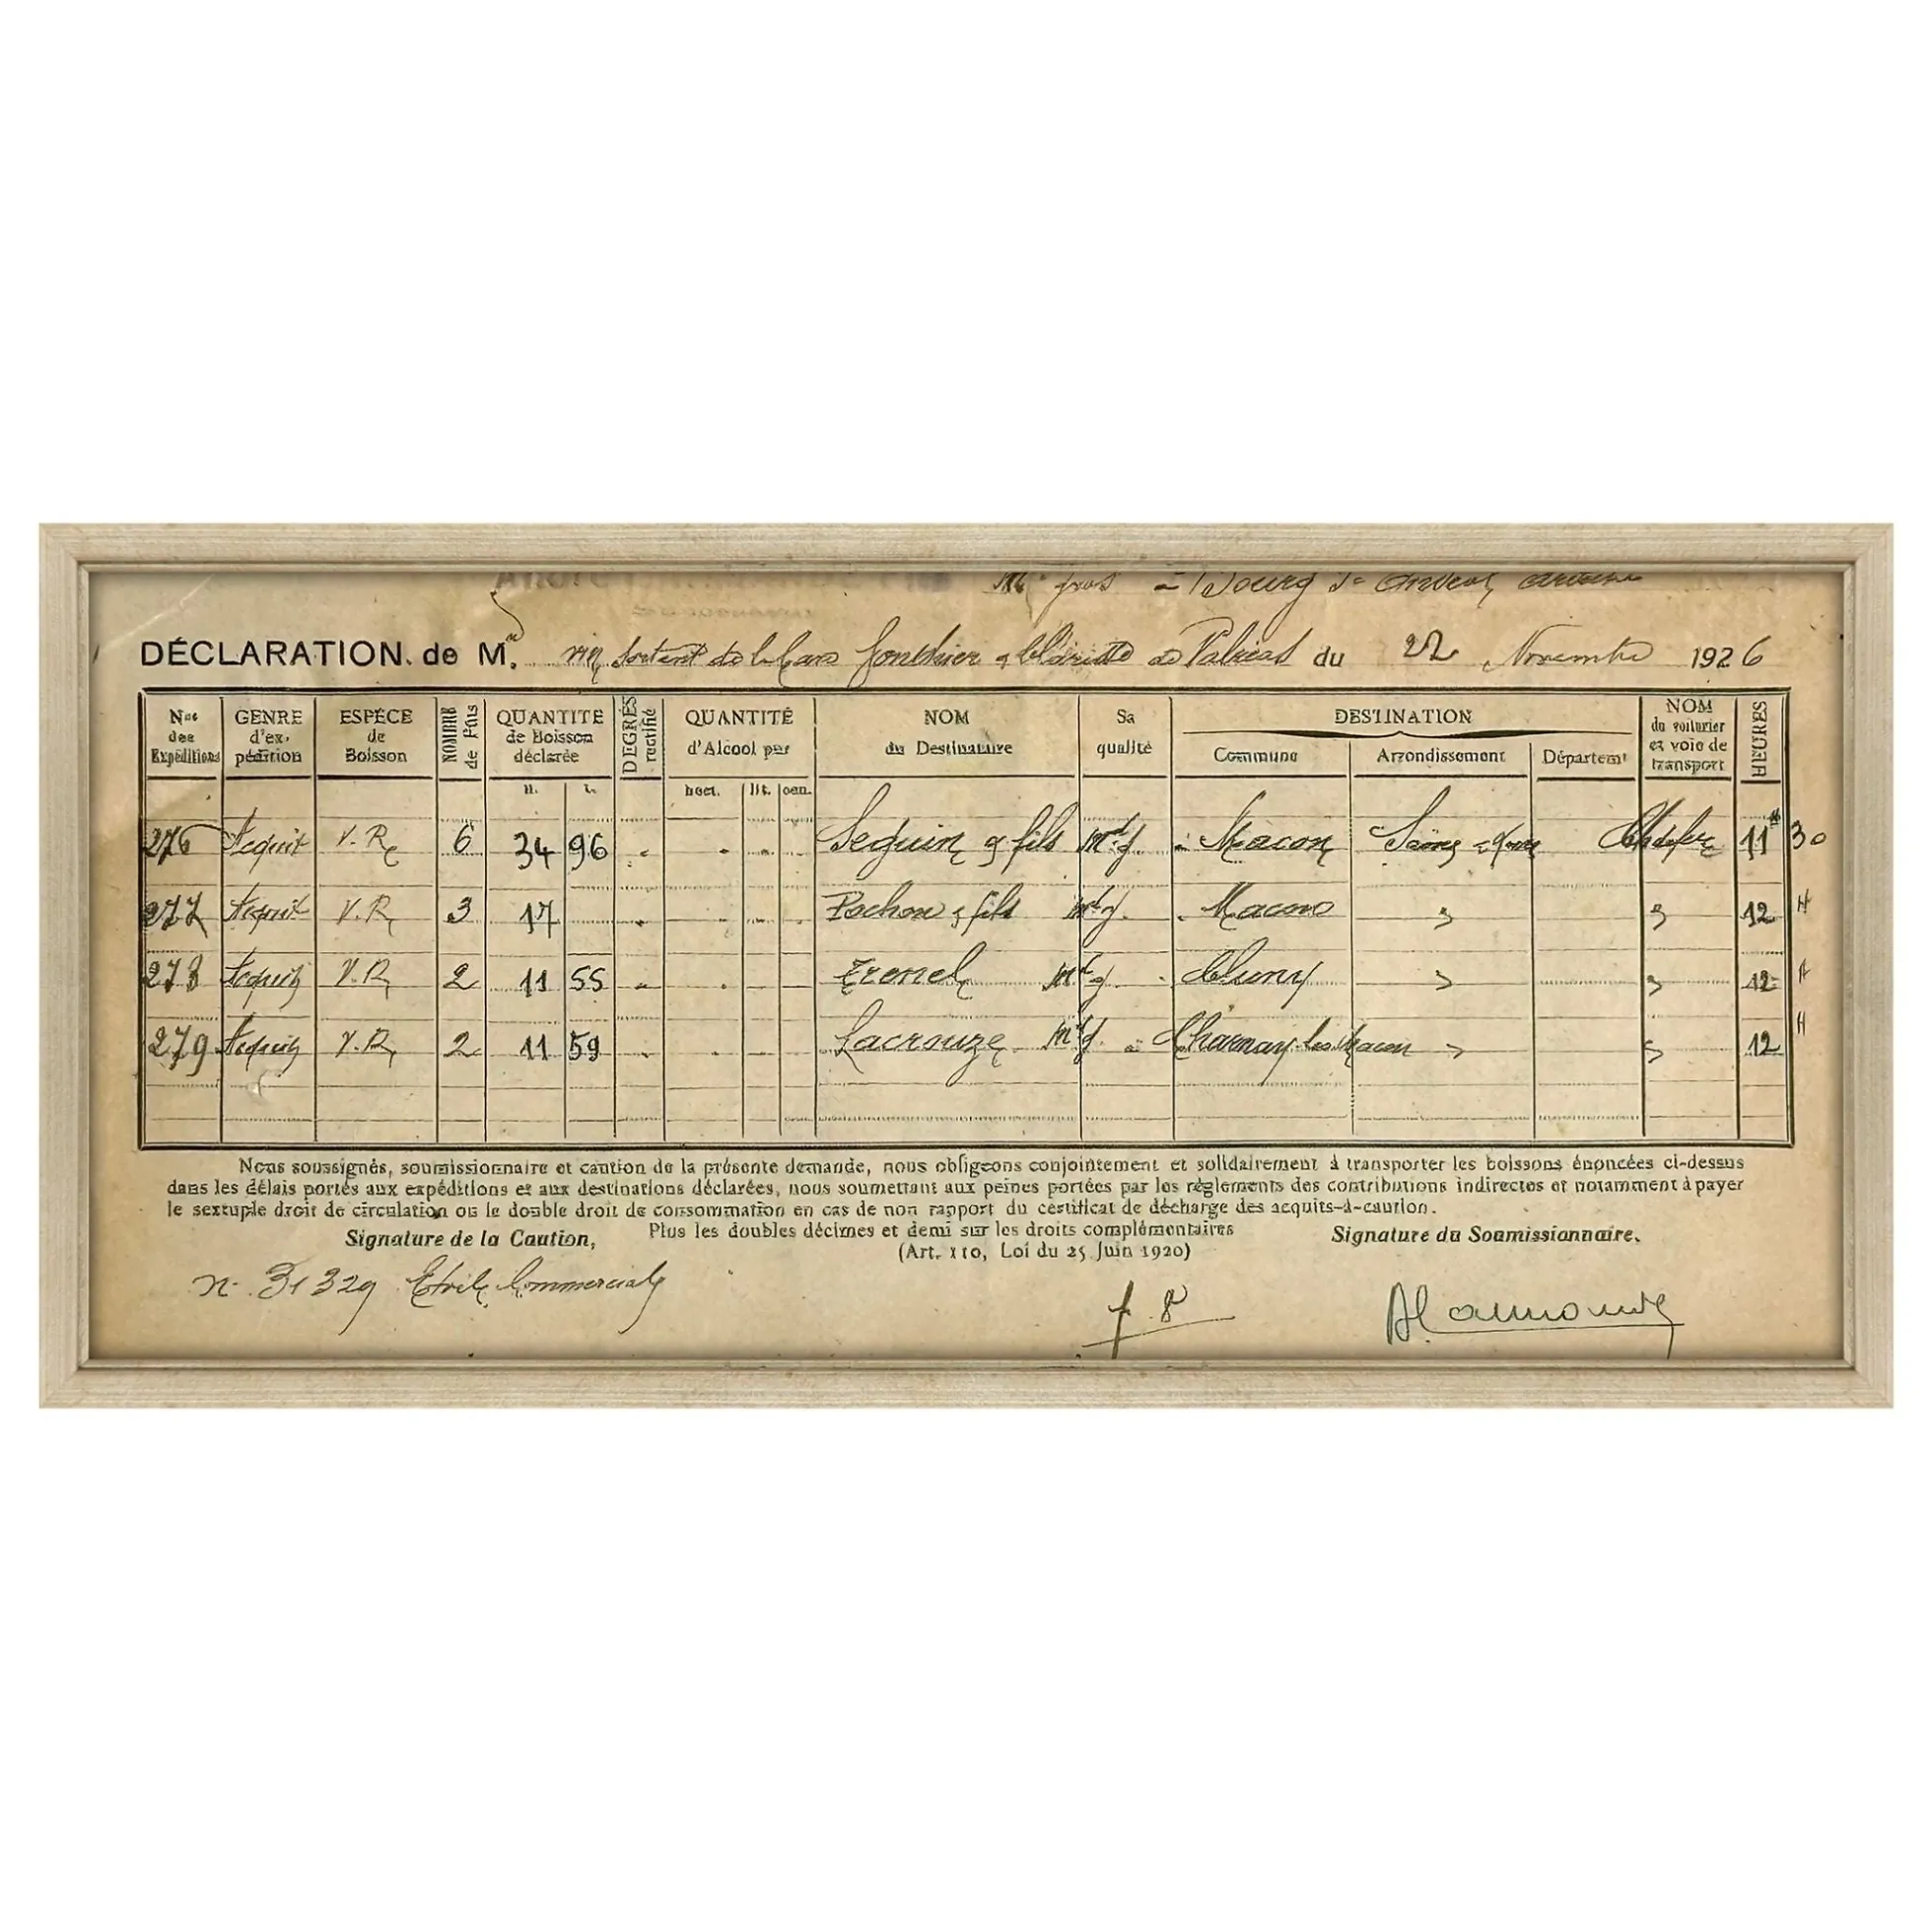 Bourg St Andéol
DÉCLARATION de M. vin sortant de la Cave de Valréas du 22 Novembre 1926
Nos des Expéditions GENRE d'expédition ESPÈCE de Boisson NOMBRE de Fûts QUANTITE de Boisson déclarée DEGRÉS rectifié QUANTITÉ d'Alcool pur NOM du Destinataire Sa qualité DESTINATION Commune Arrondissement Départemt NOM du voiturier et voie de transport HEURES
H. L. hect. lit. cen.
276 Acquit V. R. 6 34 96 Seguin & fils Md g. Macon Saône & Loire Ch de fer 11 H 30
277 Acquit V. R. 3 17 Pochon & fils Md g. Macon " " 12 H
278 Acquit V. R. 2 11 55 Trenel Md g. Cluny " " 12 H
279 Acquit V. R. 2 11 59 Lacrouze Md g. à Charnay-les-Macon " " 12 H
Nous soussignés, soumissionnaire et caution de la présente demande, nous obligeons conjointement et solidairement à transporter les boissons énoncées ci-dessus
dans les délais portés aux expéditions et aux destinations déclarées, nous soumettant aux peines portées par les règlements des contributions indirectes et notamment à payer
le sextuple droit de circulation ou le double droit de consommation en cas de non rapport du certificat de décharge des acquits-à-caution.
Plus les doubles décimes et demi sur les droits complémentaires
Signature de la Caution, Signature du Soumissionnaire.
(Art. 110, Loi du 25 Juin 1920)
n. 31329 Commerciale